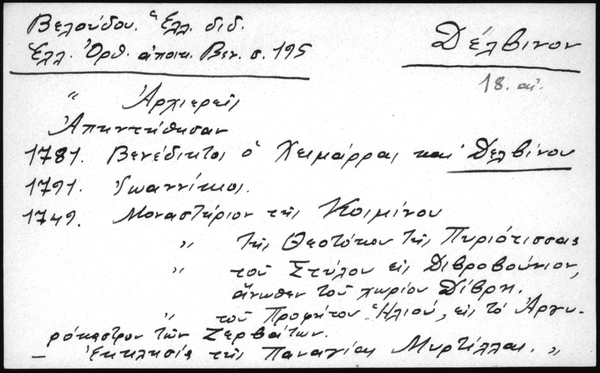 Βελούδου. Ἑλλ. διδ.
Ἑλλ. Ὀρθ. ἀποικ. Βεν. σ. 195
Δέλβινον
18. αἰ.
" Ἀρχιερεῖς
Ἀπηντήθησαν
1781. Βενέδικτος ὁ Χειμάρρας καὶ Δελβίνου
1791. Ἰωαννίκιος.
1749. Μοναστήριον τῆς Κοιμίνου
" τῆς Θεοτόκου τῆς Πυριότισσας
" τοῦ Στύλου εἰς Διβροβούνιον,
ἄνωθεν τοῦ χωρίου Δίβρη.
" τοῦ Προφήτου Ἠλιού, εἰς τὸ Ἀργυ-
ρόκαστρον τῶν Ζερβάτων.
– ἐκκλησία τῆς Παναγίας Μυρτίλλας. "